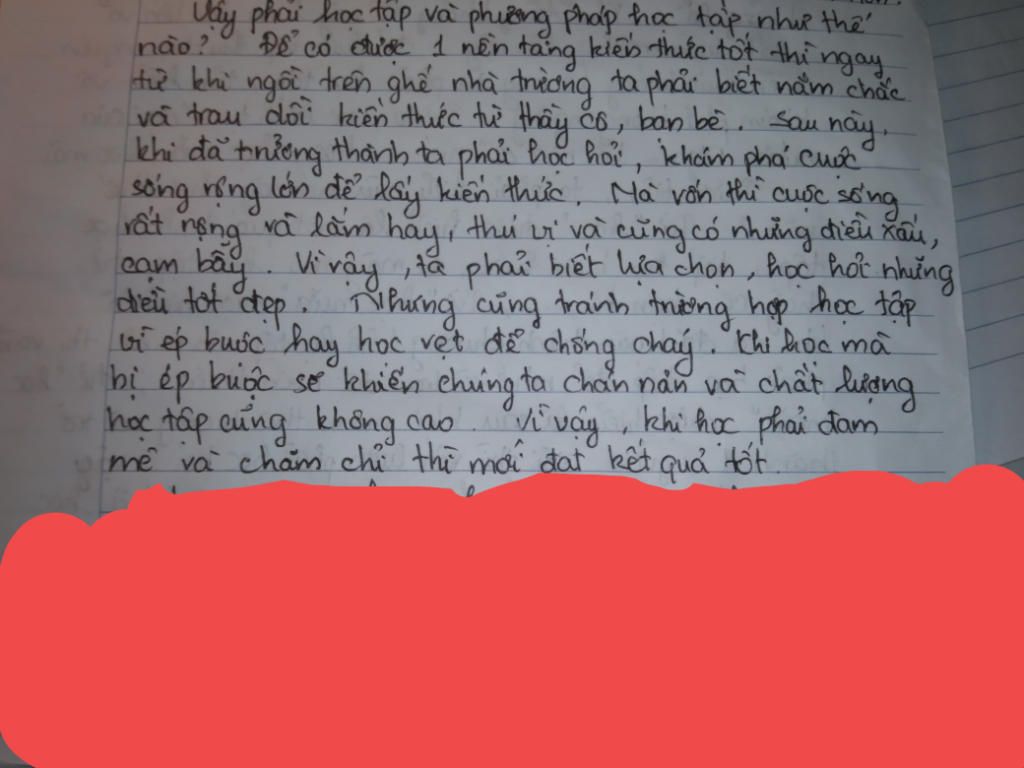 Vậy phải học tập và phương pháp học tập như thế
nào? Để có được 1 nền tảng kiến thức tốt thì ngay
từ khi ngồi trên ghế nhà trường ta phải biết nắm chắc
và trau dồi kiến thức từ thầy cô, bạn bè. Sau này,
khi đã trưởng thành ta phải học hỏi, khám phá cuộc
sống rộng lớn để lấy kiến thức. Mà vốn thì cuộc sống
rất rộng và lắm hay, thú vị và cũng có những điều xấu,
cạm bẫy. Vì vậy, ta phải biết lựa chọn, học hỏi những
điều tốt đẹp. Nhưng cũng tránh trường hợp học tập
vì ép buộc hay học vẹt để chống cháy. Khi học mà
bị ép buộc sẽ khiến chúng ta chán nản và chất lượng
học tập cũng không cao. Vì vậy, khi học phải đam
mê và chăm chỉ thì mới đạt kết quả tốt